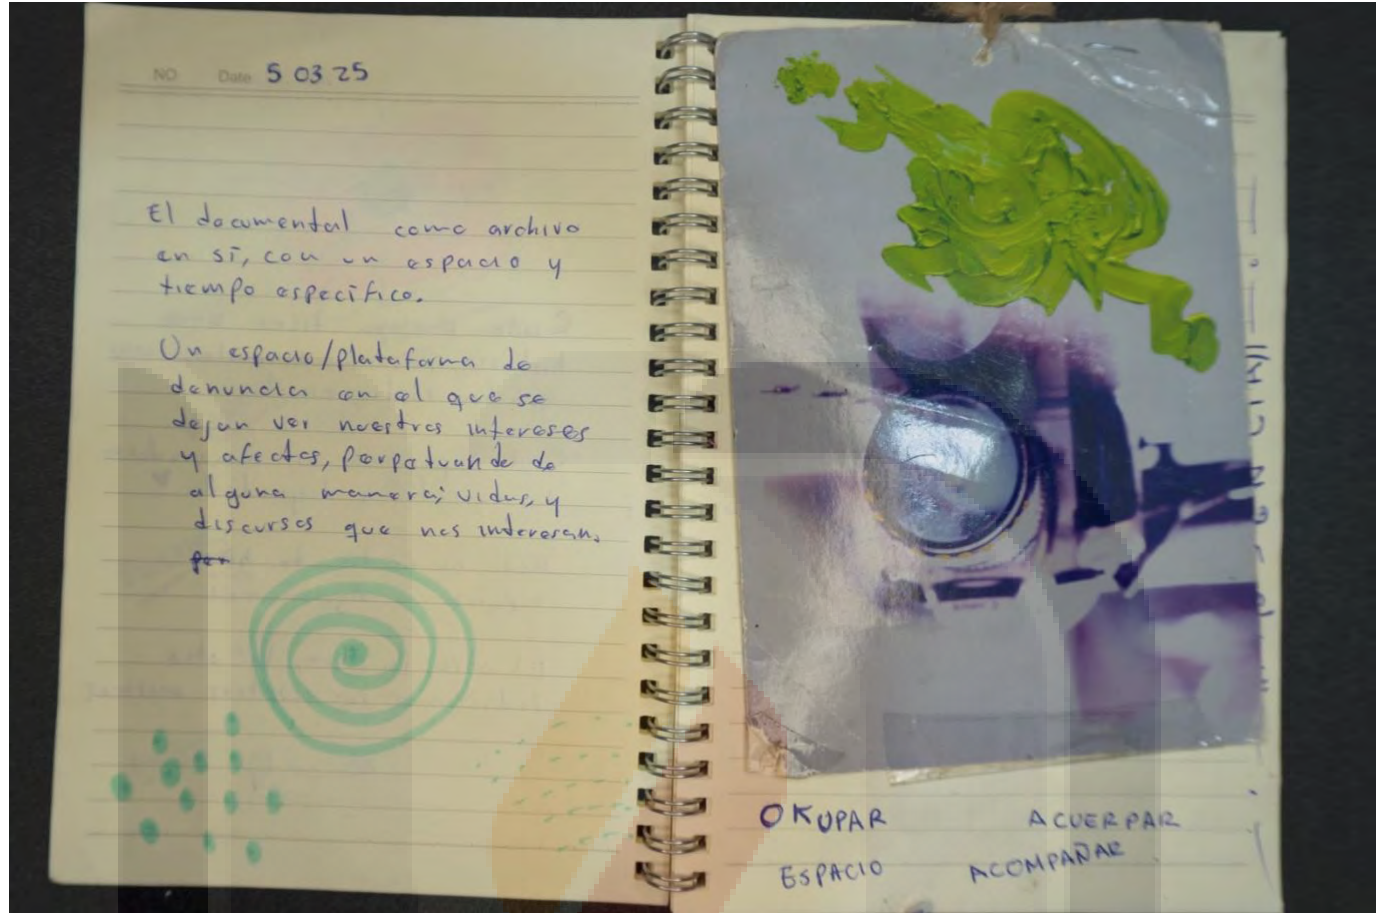 NO Date 5 03 25
El documental como archivo
en sí, con un espacio y
tiempo específico.
Un espacio/plataforma de
denuncia en el que se
dejan ver nuestros intereses
y afectos, perpetuando de
alguna manera; vidas, y
discursos que nos interesan,
por
OKUPAR ACUERPAR
ESPACIO ACOMPAÑAR